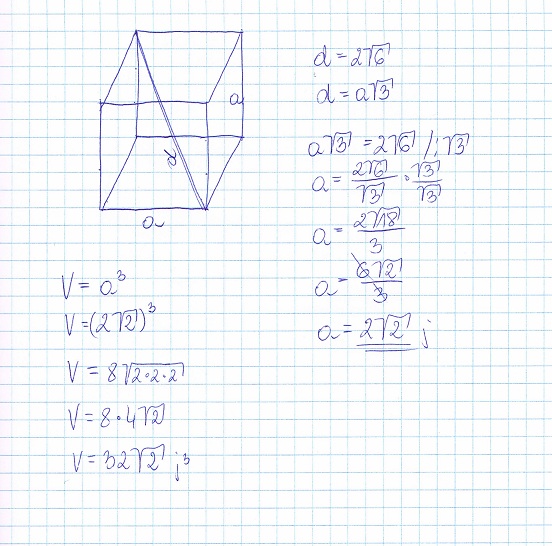 a
d
a
d = 2√6
d = a√3
a√3 = 2√6 /:√3
a = 2√6/√3 · √3/√3
a = 2√18/3
a = 6√2/3
a = 2√2 j
V = a³
V = (2√2)³
V = 8√2·2·2
V = 8·4√2
V = 32√2 j³